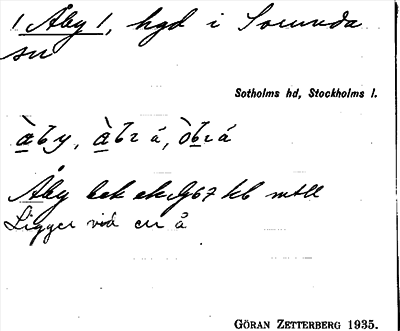 1 Åby 1, hgd i Sorunda
sn
Sotholms hd, Stockholms l.
Åby bek ek. G67 kb mtll
Ligger vid en å
GÖRAN ZETTERBERG 1935.